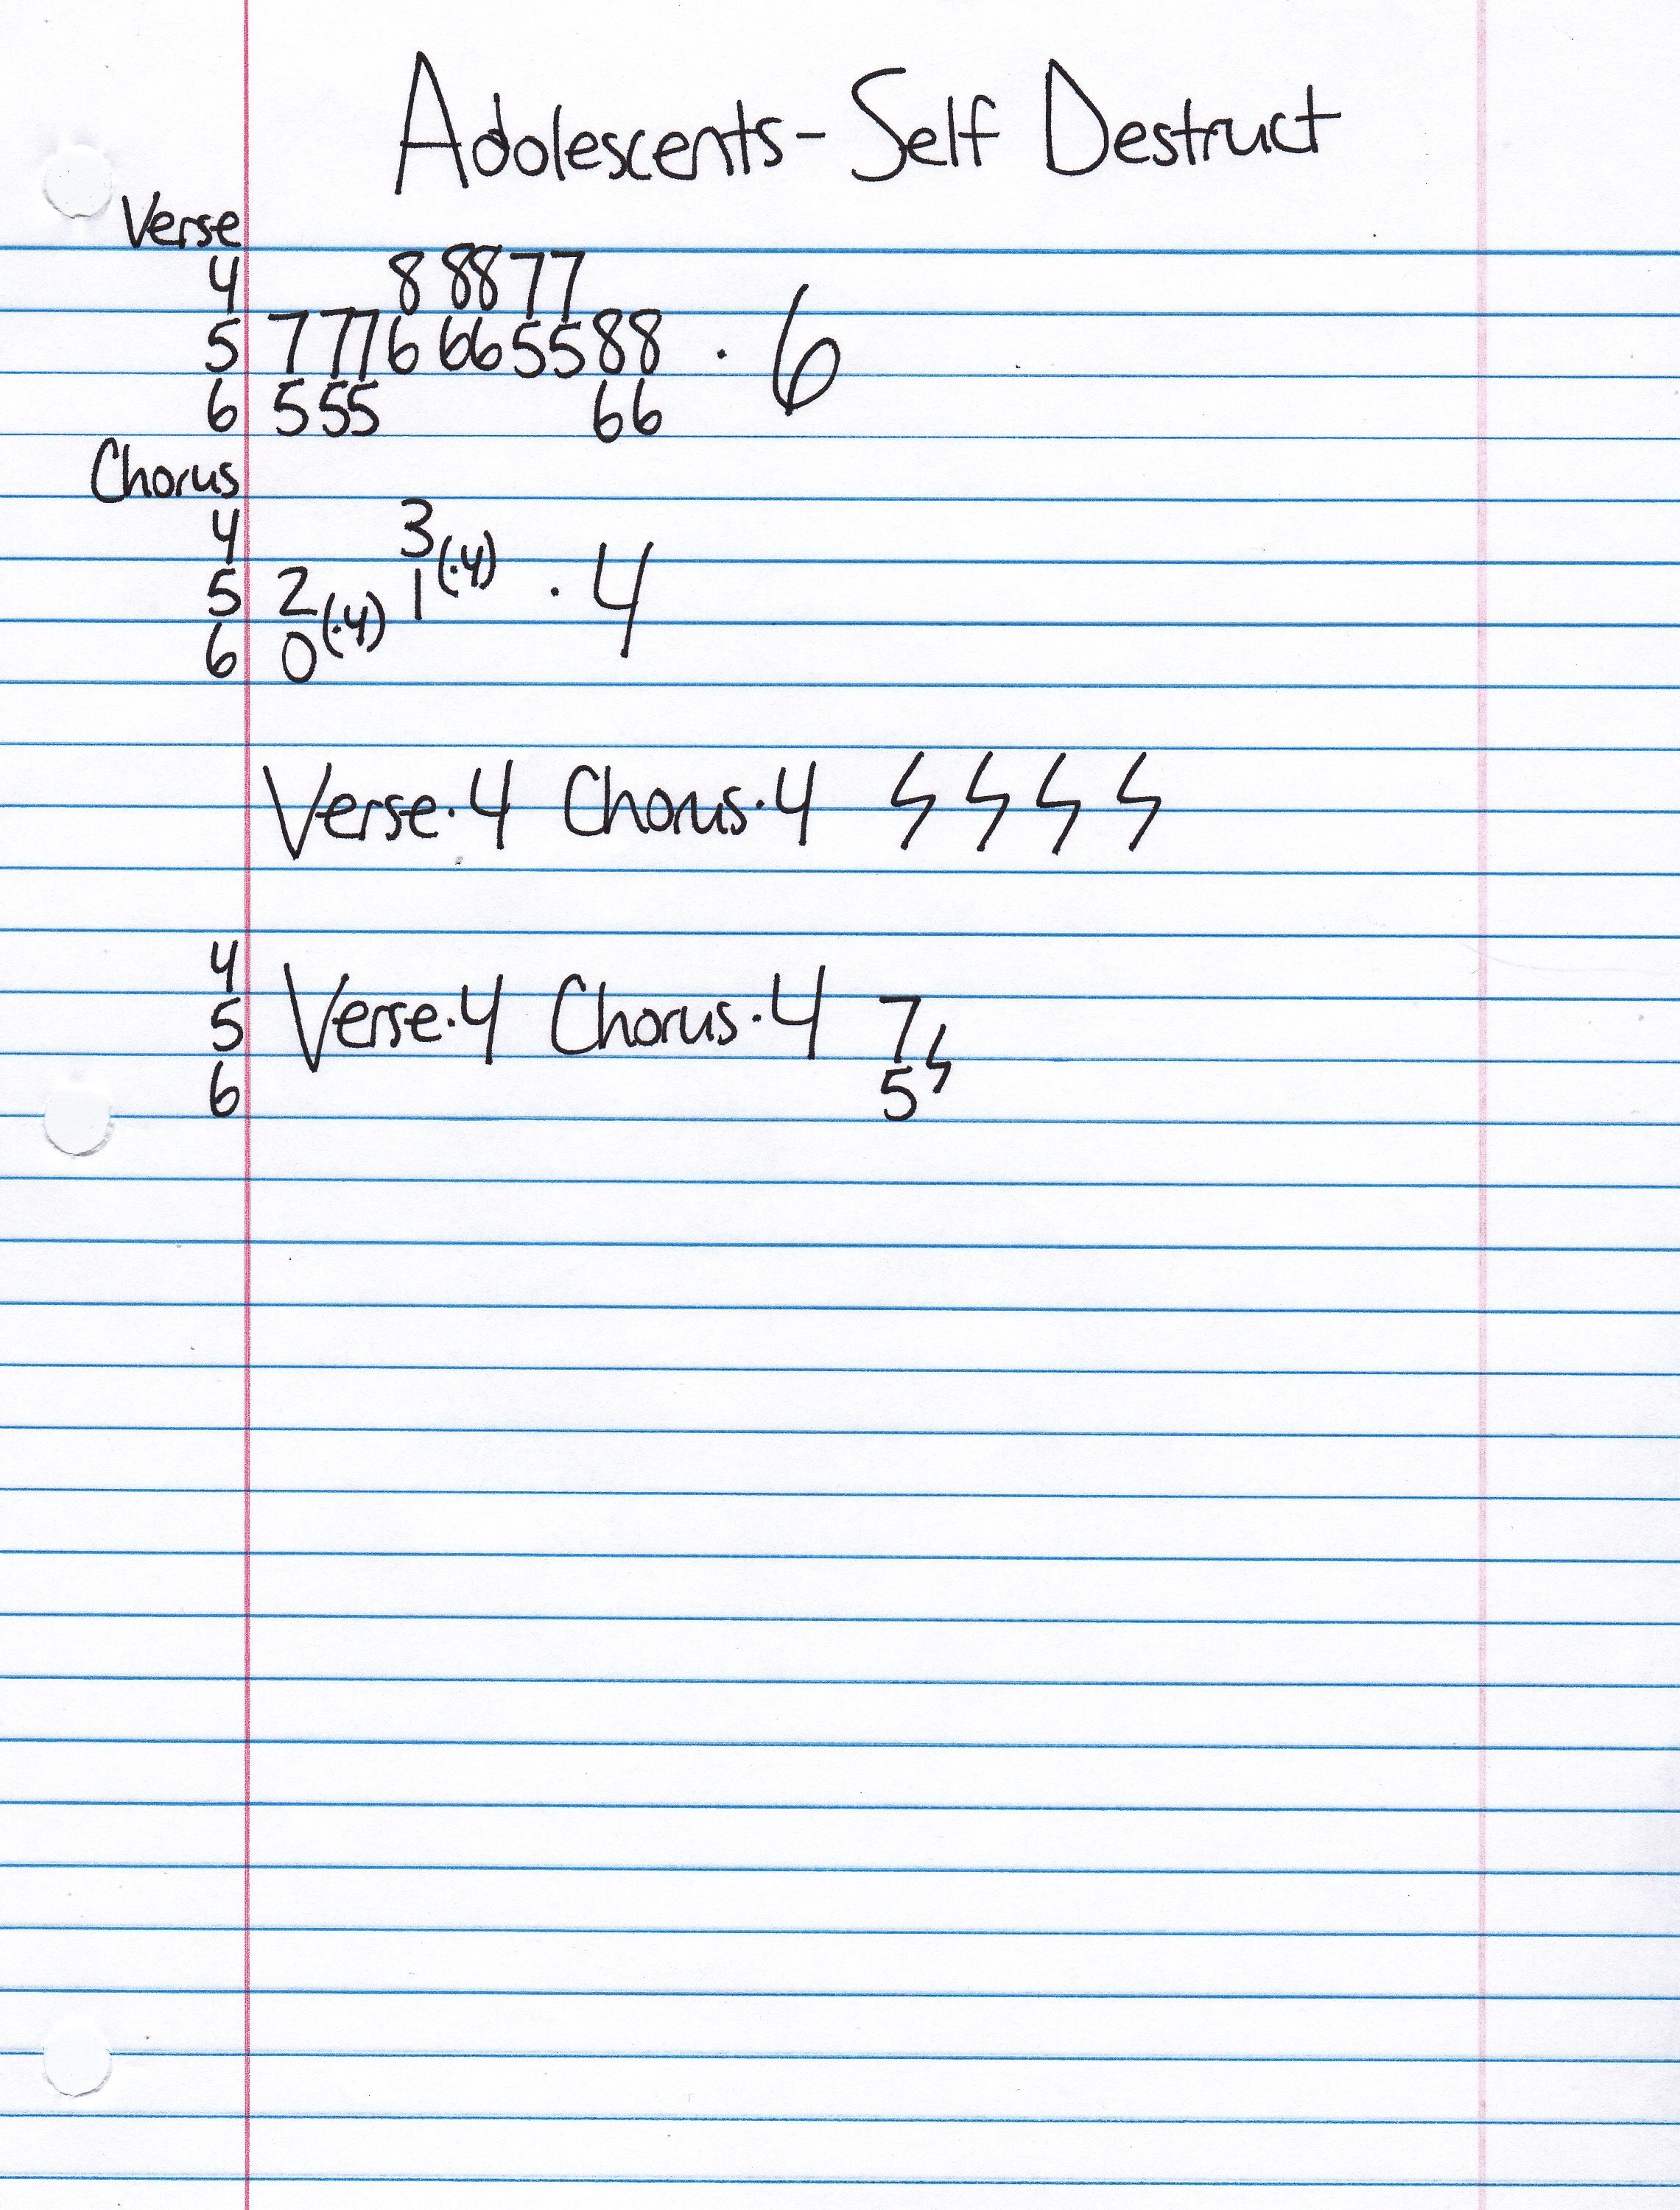 Adolescents - Self Destruct
Verse
4 8 88 77
5 7 77 6 66 55 88 · 6
6 5 55 66
Chorus
4 3
5 2 1 (·4) · 4
6 0 (·4)
Verse·4 Chorus·4 ϟ ϟ ϟ ϟ
4
5 Verse·4 Chorus·4 7 ϟ
6 5